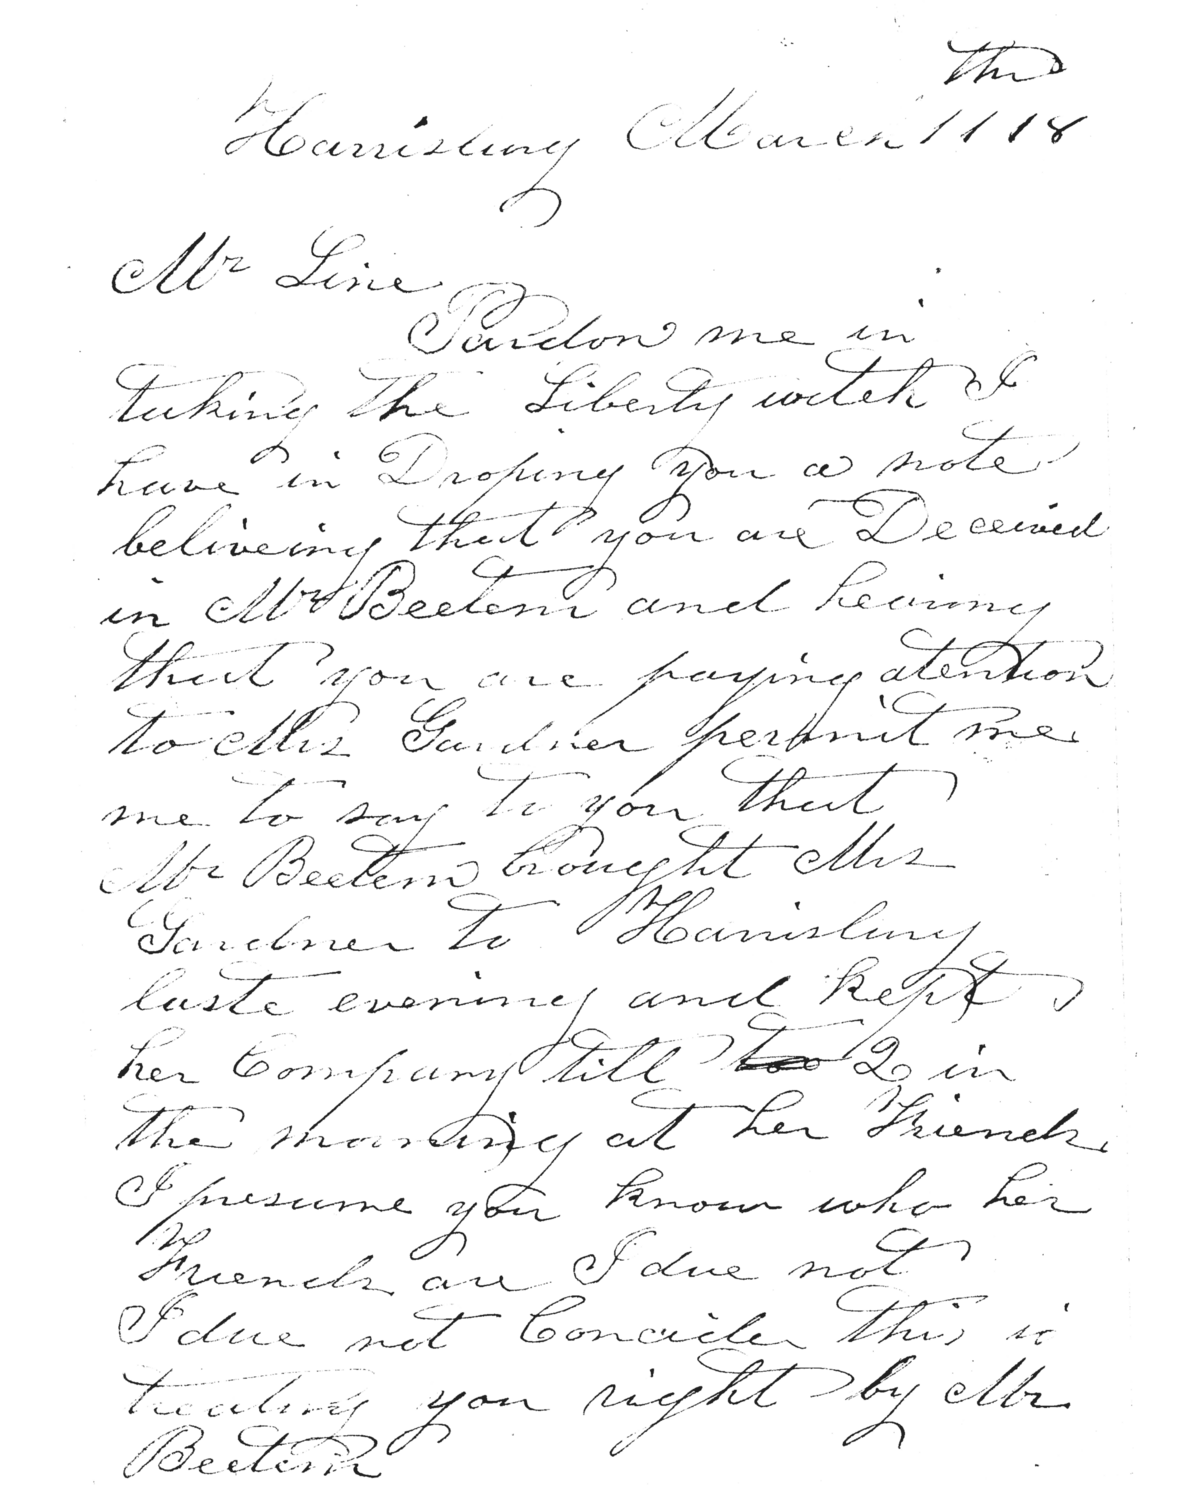 th
Harrisburg March 11 18
Mr Line
Pardon me in
taking the Liberty witch I
have in Droping you a note
beliveing that you are Deceived
in Mr Beetem and hearing
that you are paying atention
to Mrs Gardner permit me
me to say to you that
Mr Beetem brought Mrs
Gardner to Harrisburg
laste evening and kept
her Company till to 2 in
the morning at her Friends
I presume you know who her
Friends are I due not
I due not Concider this is
treating you right by Mr
Beetem